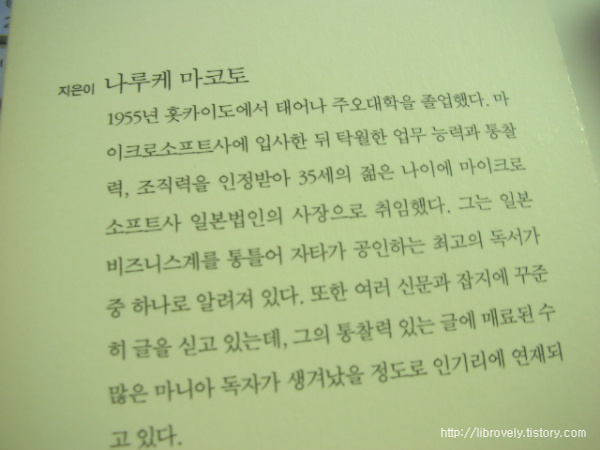 지은이 나루케 마코토
1955년 홋카이도에서 태어나 주오대학을 졸업했다. 마
이크로소프트사에 입사한 뒤 탁월한 업무 능력과 통찰
력, 조직력을 인정받아 35세의 젊은 나이에 마이크로
소프트사 일본법인의 사장으로 취임했다. 그는 일본
비즈니스계를 통틀어 자타가 공인하는 최고의 독서가
중 하나로 알려져 있다. 또한 여러 신문과 잡지에 꾸준
히 글을 싣고 있는데, 그의 통찰력 있는 글에 매료된 수
많은 마니아 독자가 생겨났을 정도로 인기리에 연재되
고 있다.
http://librovely.tistory.com